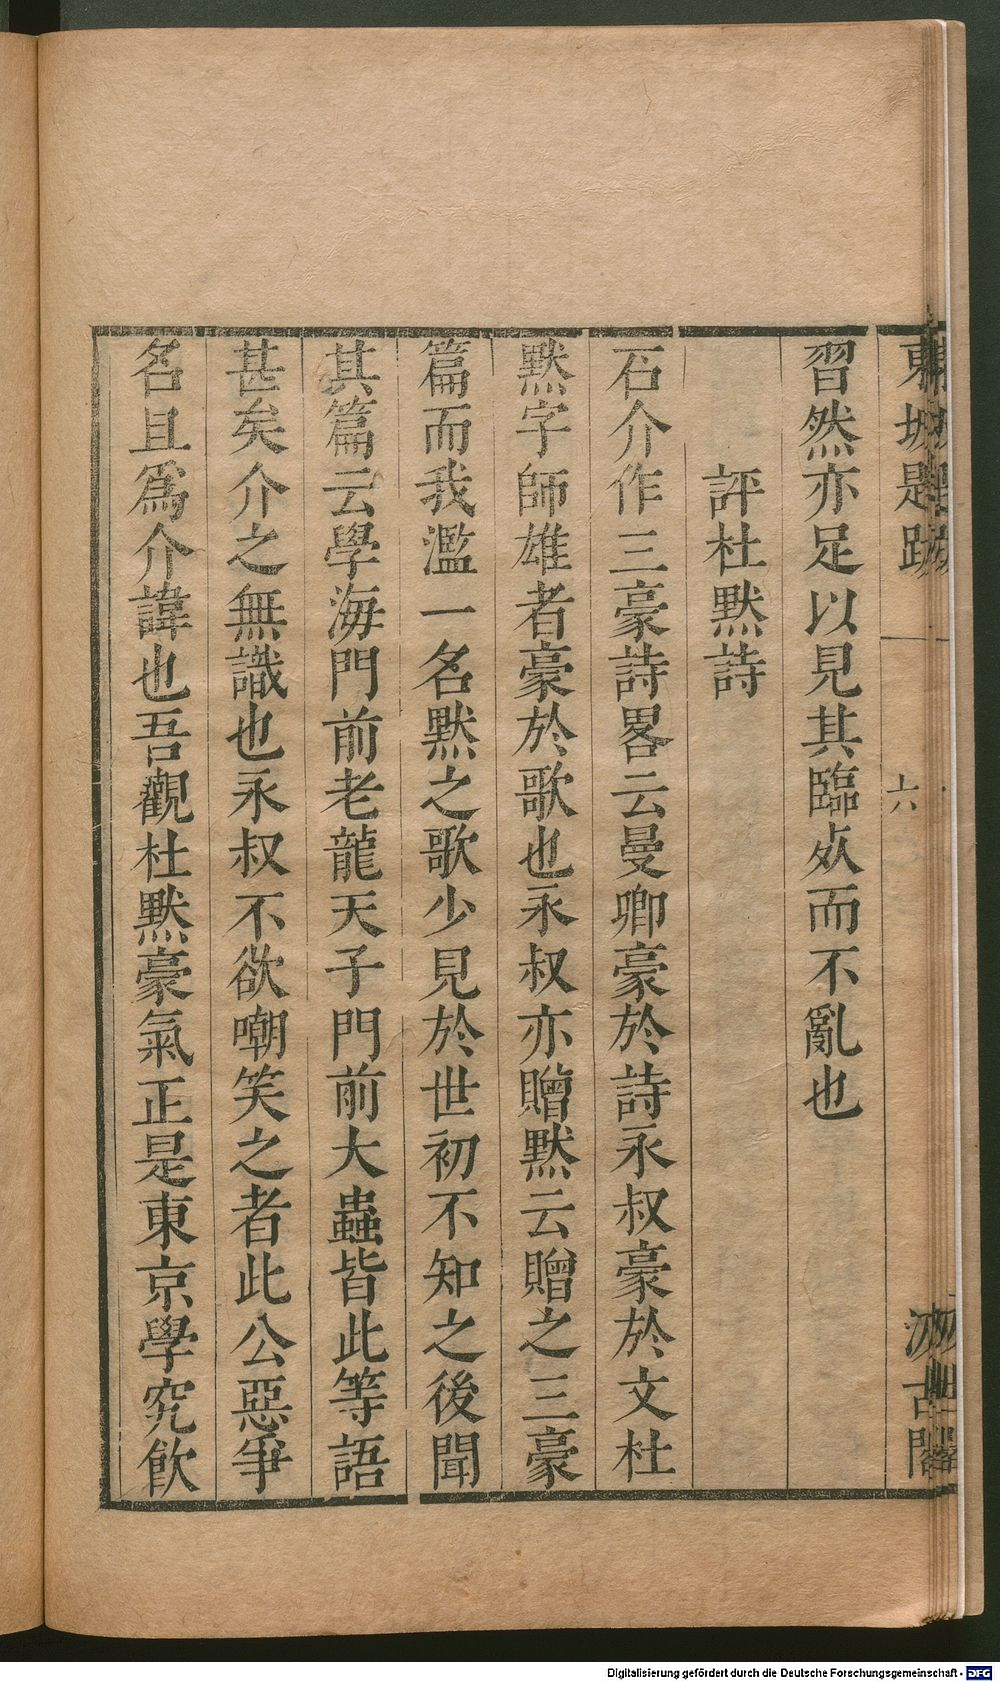 東坡題跋
六
汲古閣
習然亦足以見其臨𣦸而不亂也
評杜默詩
石介作三豪詩畧云曼卿豪於詩永叔豪於文杜
默字師雄者豪於歌也永叔亦贈默云贈之三豪
篇而我濫一名默之歌少見於世初不知之後聞
其篇云學海門前老龍天子門前大蟲皆此等語
甚矣介之無識也永叔不欲嘲笑之者此公惡爭
名且爲介諱也吾觀杜默豪氣正是東京學究飲
Digitalisierung gefördert durch die Deutsche Forschungsgemeinschaft - DFG